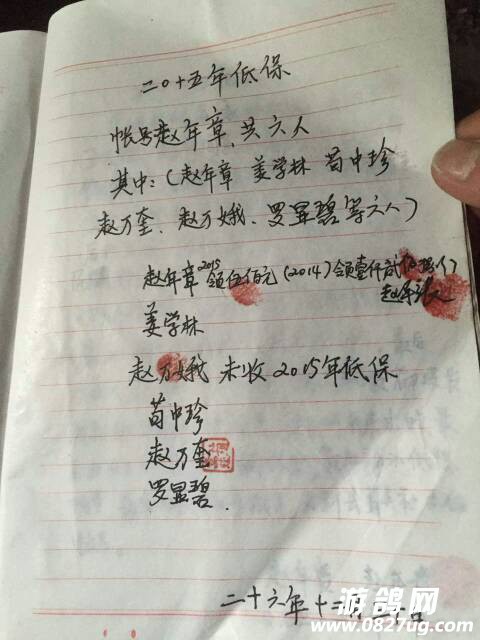 二0十五年低保
帐号赵年章,共六人
其中:(赵年章 姜学林 苟中珍
赵万奎、赵万娥、罗显碧等六人)
赵年章2015领伍佰元(2014)领壹仟贰佰
赵年章
姜学林
赵万娥 未收2015年低保
苟中珍
赵万奎
罗显碧.
二十六年十二月
游鸽网
www.0827ug.com